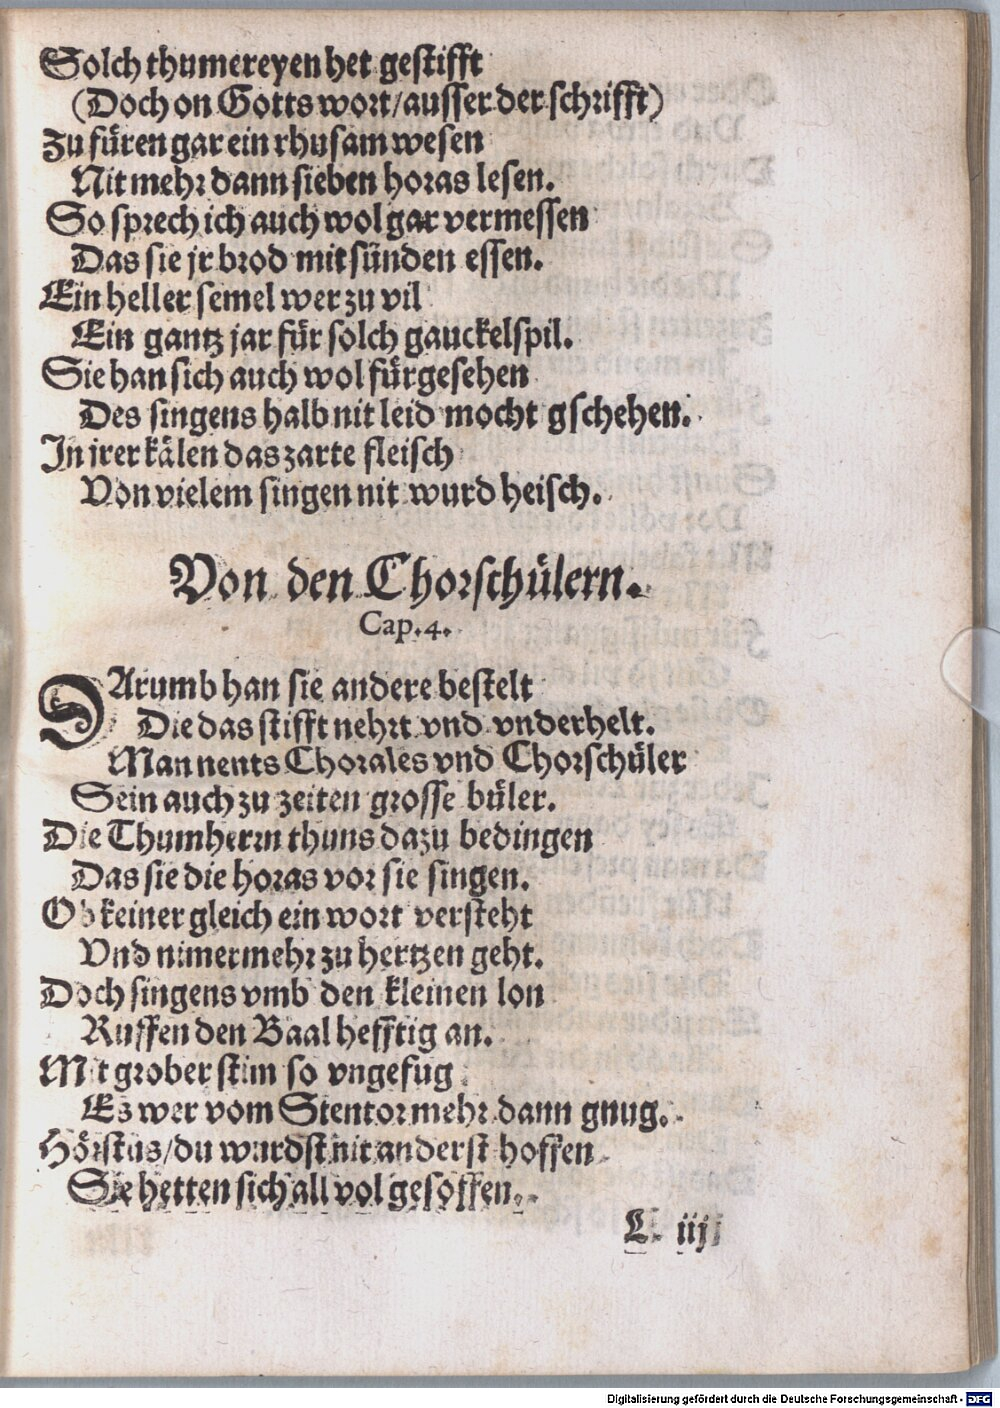 Solch thumereyen het gestifft
(Doch on Gotts wort/ausser der schrifft)
Zu füren gar ein rhusam wesen
Nit mehr dann sieben horas lesen.
So sprech ich auch wol gar vermessen
Das sie jr brod mit sünden essen.
Ein heller semel wer zu vil
Ein gantz jar für solch gauckelspil.
Sie han sich auch wol fürgesehen
Des singens halb nit leid mocht gschehen.
In jrer kälen das zarte fleisch
Von vielem singen nit wurd heisch.
Von den Chorschülern.
Cap. 4.
DArumb han sie andere bestelt
Die das stifft nehrt vnd vnderhelt.
Man nents Chorales vnd Chorschüler
Sein auch zu zeiten grosse büler.
Die Thumherrn thuns dazu bedingen
Das sie die horas vor sie singen.
Ob keiner gleich ein wort versteht
Vnd nimermehr zu hertzen geht.
Doch singens vmb den kleinen lon
Ruffen den Baal hefftig an.
Mit grober stim so vngefug
Es wer vom Stentor mehr dann gnug.
Hörstus/du wurdst nit anderst hoffen
Sie hetten sich all vol gesoffen.
L iij
Digitalisierung gefördert durch die Deutsche Forschungsgemeinschaft - DFG